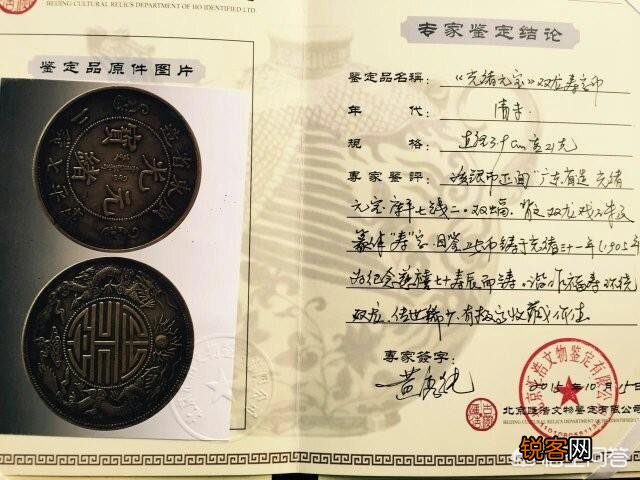 BEIJING CULTURAL RELICS DEPARTMENT OF HO IDENTIFIED LTD.
鉴定品原件图片
廣東省造
光緒元寶
专家鉴定结论
鉴定品名稱：《光绪元宝》双龙寿字币
年 代： 清末
规 格： 直径3.9cm 重21克
专家鉴評： 该银币正面“广东省造 光绪
元宝 库平七钱二. 双蝠. 背 双龙戏珠及
篆体“寿”字. 目鉴此币铸于光绪三十一年(1905年
为纪念慈禧七十寿辰而铸. 福寿环绕
双龙. 传世稀少. 有极高收藏价值
专家签字：
2015年10月15日
北京匯浩文物鉴定有限公司
BEIJING CULTURAL RELICS DEPARTMENT OF HO IDENTIFIED LTD.
锐客网